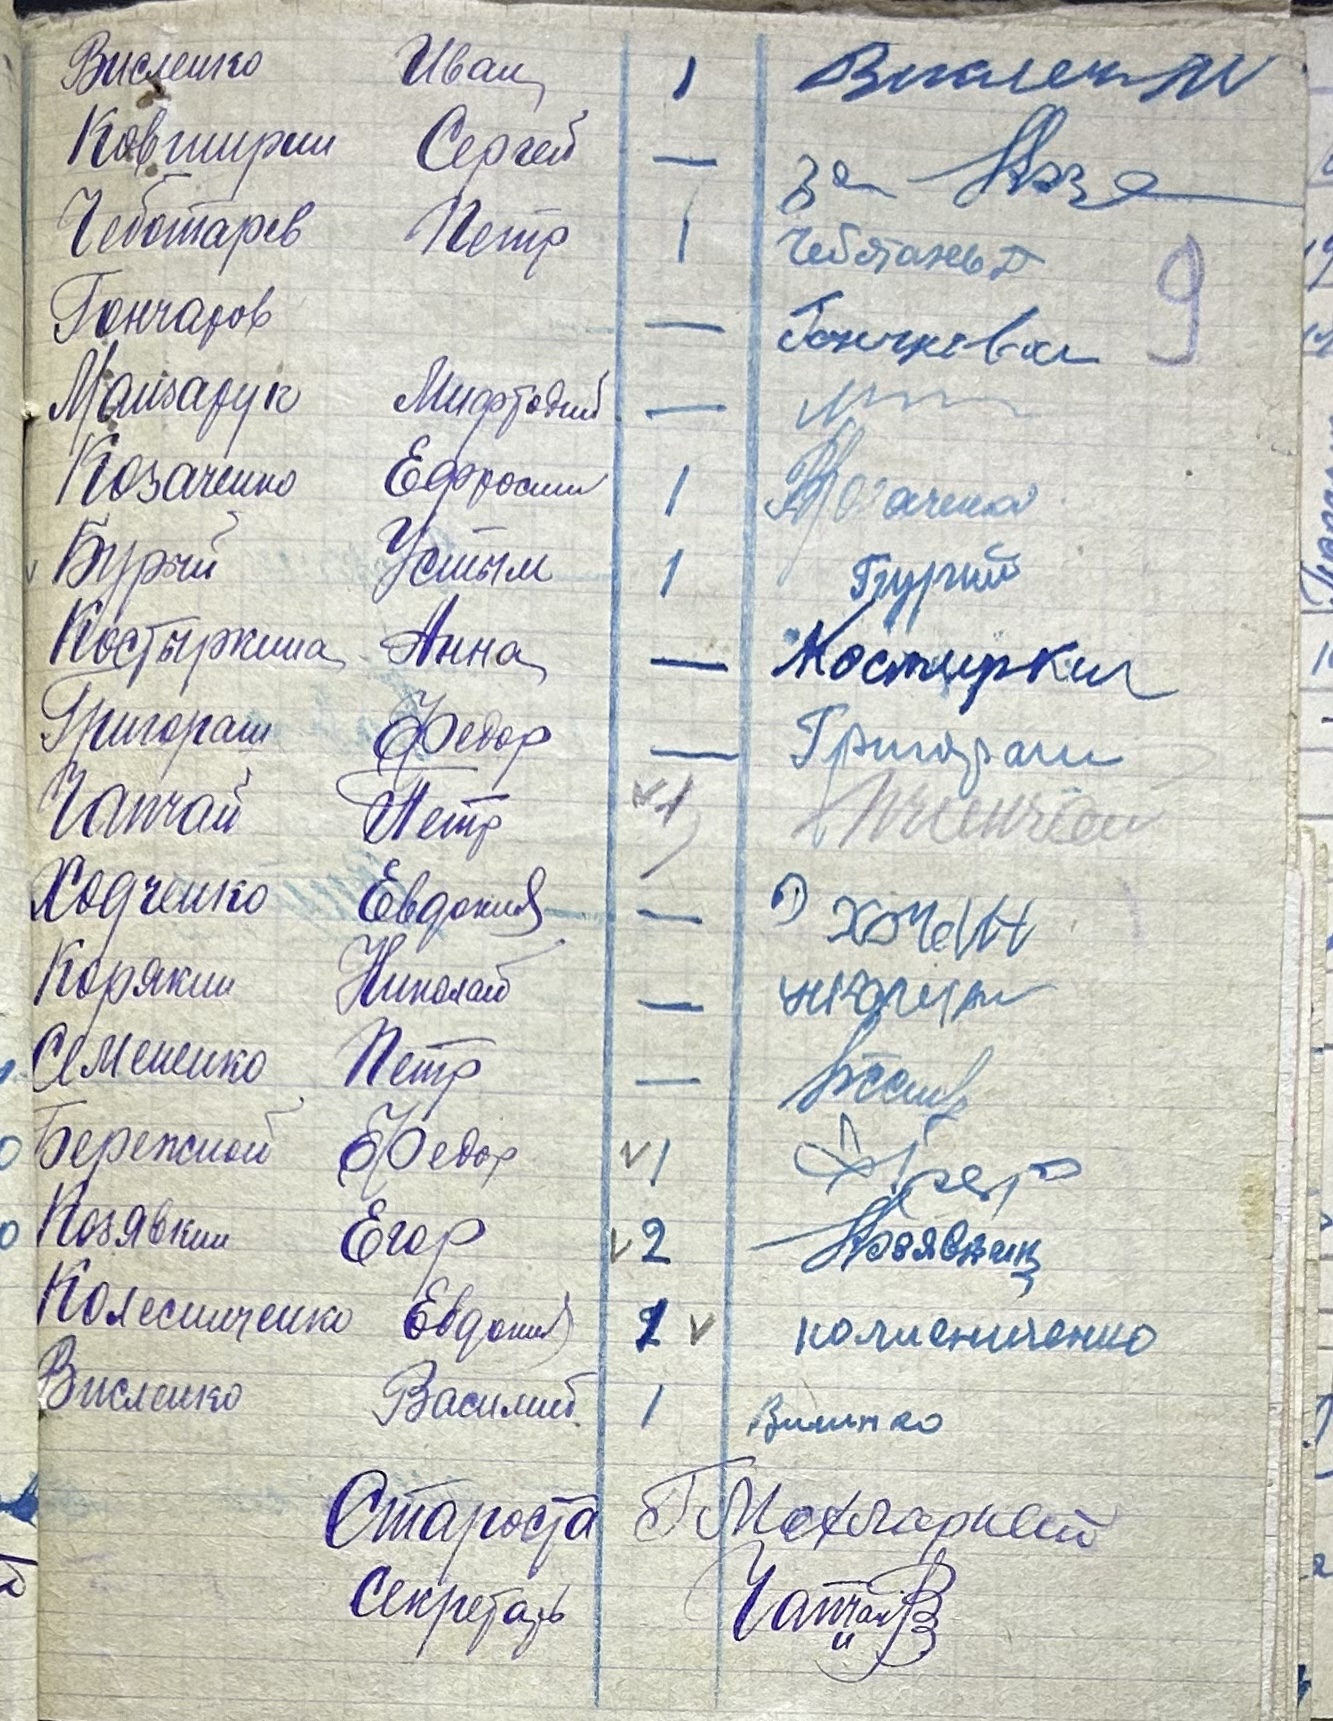 Висленко Иван 1 Висленк
Ковширин Сергей — за
Чеботарев Петр 1
Гончаров — Гончарова
9
Манзарук Мифтодий —
Козаченко Ефросин 1 Козаченко
Бурый Устым 1 Бурий
Костыркина Анна — Костирки
Григораш Федор — Григораш
Чапчай Петр 1
Ходченко Евдокия —
Корякин Николай —
Семененко Петр —
Бережной Федор 1
Козявкин Егор 2 Козявкин
Колесниченко Евдокия 2 колисниченко
Висленко Василий 1 Вилинко
Староста Г
Секретарь Чапчай В